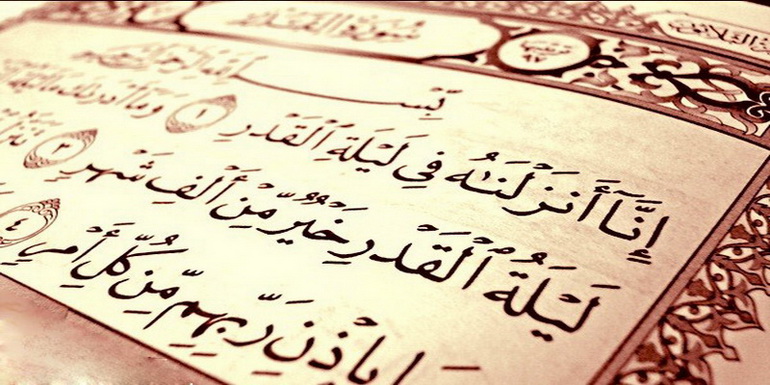 سُورَةُ القَدْرِ
بِسْمِ اللَّهِ الرَّحْمَٰنِ الرَّحِيمِ
إِنَّآ أَنزَلْنَٰهُ فِي لَيْلَةِ ٱلْقَدْرِ ١ وَمَآ أَدْرَىٰكَ مَا
لَيْلَةُ ٱلْقَدْرِ خَيْرٌ مِّنْ أَلْفِ شَهْرٍ ٣
بِإِذْنِ رَبِّهِم مِّن كُلِّ أَمْرٍ ٤